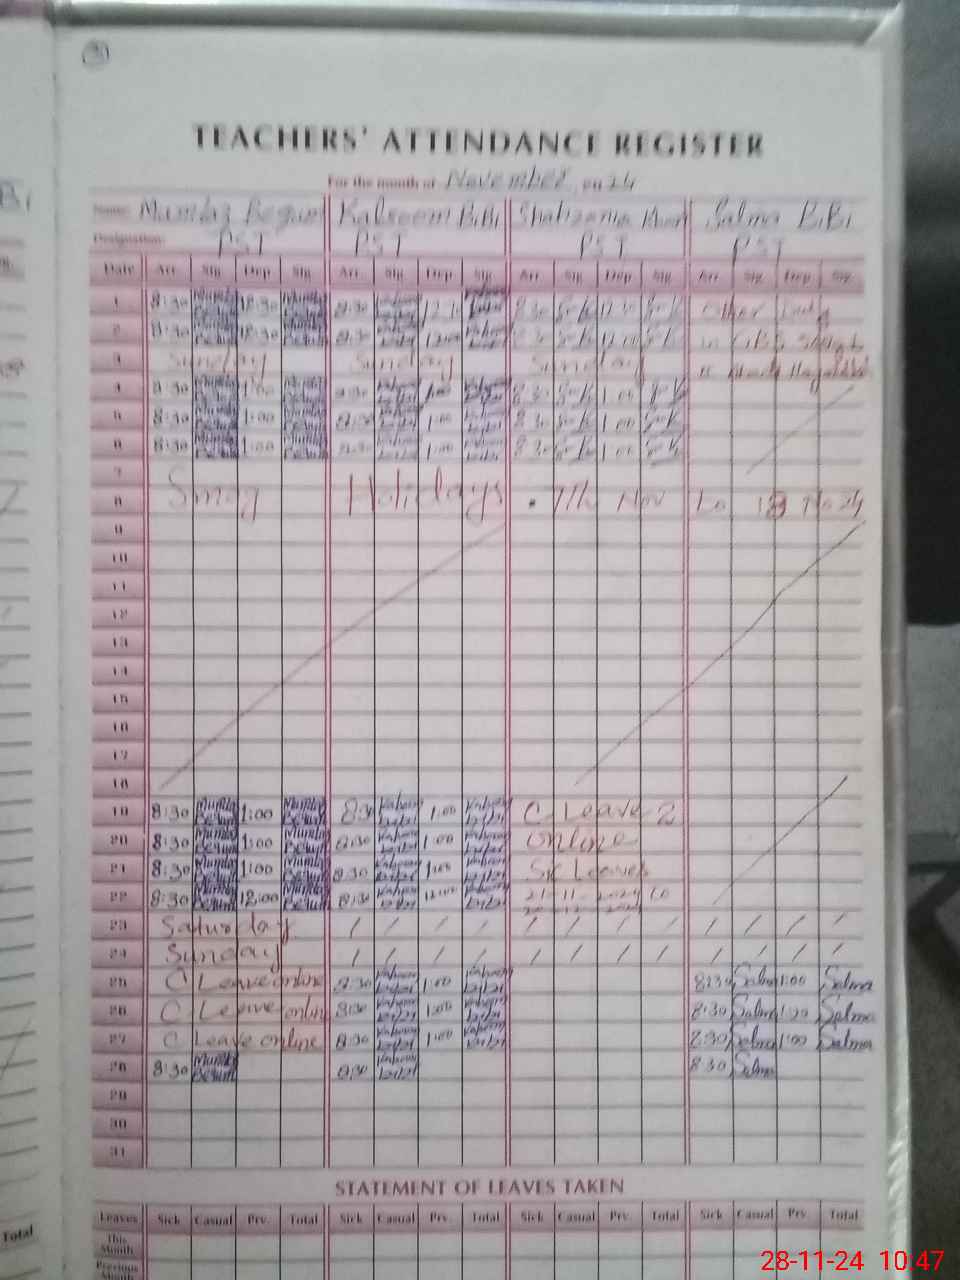 3
TEACHERS' ATTENDANCE REGISTER
For the month of November 2024
Name Mumtaz Begum Kalsoom BiBi Shahzania Khan Salma BiBi
Designation PST PST PST PST
Date Arr. Sig. Dep. Sig. Arr. Sig. Dep. Sig. Arr. Sig. Dep. Sig. Arr. Sig. Dep. Sig.
1 8:30 Mumtaz Begum 12:30 Mumtaz Begum 8:30 Kalsoom BiBi 12:30 8:30 S-K 12:30 S-K Other Duty
2 8:30 Mumtaz Begum 12:30 Mumtaz Begum 8:30 Kalsoom BiBi 12:00 8:30 S-K 12:00 S-K in GBS
3 Sunday Sunday Sunday
4 8:30 1:00 8:30 1:00 8:30 S-K 1:00 S-K
5 8:30 1:00 8:30 1:00 8:30 S-K 1:00 S-K
6 8:30 1:00 8:30 1:00 8:30 S-K 1:00 S-K
7
8 Smog Holidays 7th Nov to 18 No 24
9
10
11
12
13
14
15
16
17
18
19 8:30 Mumtaz Begum 1:00 Mumtaz Begum 8:30 Kalsoom BiBi 1:00 Kalsoom BiBi C Leave 2
20 8:30 Mumtaz Begum 1:00 Mumtaz Begum 8:30 Kalsoom BiBi 1:00 Kalsoom BiBi online
21 8:30 Mumtaz Begum 1:00 Mumtaz Begum 8:30 Kalsoom BiBi 1:00 Kalsoom BiBi Sic Leaves
22 8:30 Mumtaz Begum 12:00 Mumtaz Begum 8:30 Kalsoom BiBi 12:00 Kalsoom BiBi 21-11-2024 to
20-12-2024
23 Saturday / / / / / / / / / / / /
24 Sunday / / / / / / / / / / / /
25 C Leave online 8:30 Kalsoom BiBi 1:00 Kalsoom BiBi 8:30 Salma 1:00 Salma
26 C Leave online 8:30 Kalsoom BiBi 1:00 Kalsoom BiBi 8:30 Salma 1:00 Salma
27 C Leave online 8:30 Kalsoom BiBi 1:00 Kalsoom BiBi 8:30 Salma 1:00 Salma
28 8:30 Mumtaz Begum 8:30 Kalsoom BiBi 8:30 Salma
29
30
31
STATEMENT OF LEAVES TAKEN
Leaves Sick Casual Prv. Total Sick Casual Prv. Total Sick Casual Prv. Total Sick Casual Prv. Total
This Month
Previous Month
Total
28-11-24 10:47